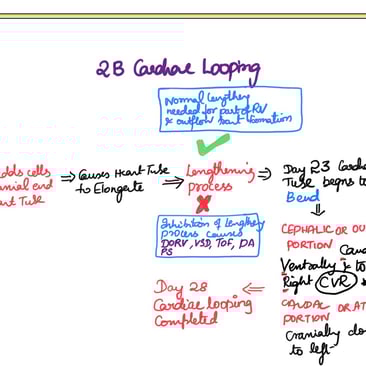 2B Cardiac Looping
Normal lengthening
needed for part of RV
& outflow tract formation
adds cells
cranial end
Heart Tube
⇒ Causes Heart Tube
to Elongate
⇒ Lengthening
process
⇒ Day 23 Cardiac
Tube begins to
Bend
Inhibition of lengthening
process causes
DORV, VSD, TOF, DA
PS
CEPHALIC OR OU
PORTION Caud
Ventrally & to
Right CVR
CAUDAL OR AT
PORTION
Cranially do
to left
Day 28
Cardiac looping
Completed